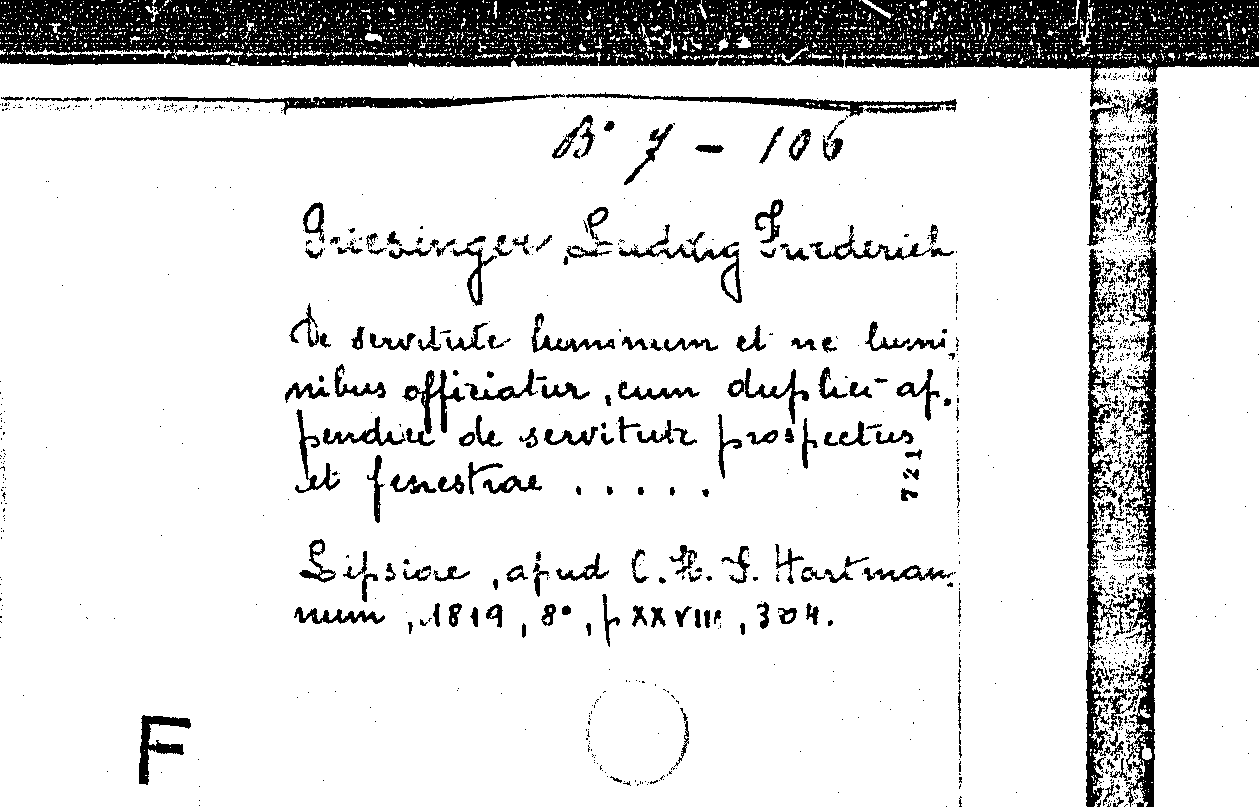 B° 7 - 106
Griesinger, Ludwig Friederich
De servitute luminum et ne lumi-
nibus officiatur, cum duplici ap-
pendice de servitute prospectus
et fenestrae . . . . .
721
Lipsiae, apud C. H. F. Hartman-
num, 1819, 8°, p XXVIII, 304.
F